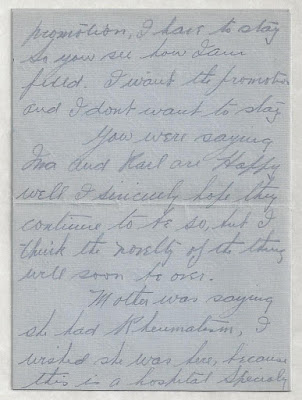 promotion, I have to stay
So you see how I am
fixed. I want the promotion
and I dont want to stay
You were saying
Ima and Karl are Happy
well I sincirely hope they
continue to be so, but I
think the novelty of the thing
will soon be over.
Mother was saying
she had Rheumatism, I
wished she was here, because
this is a hospital specialy